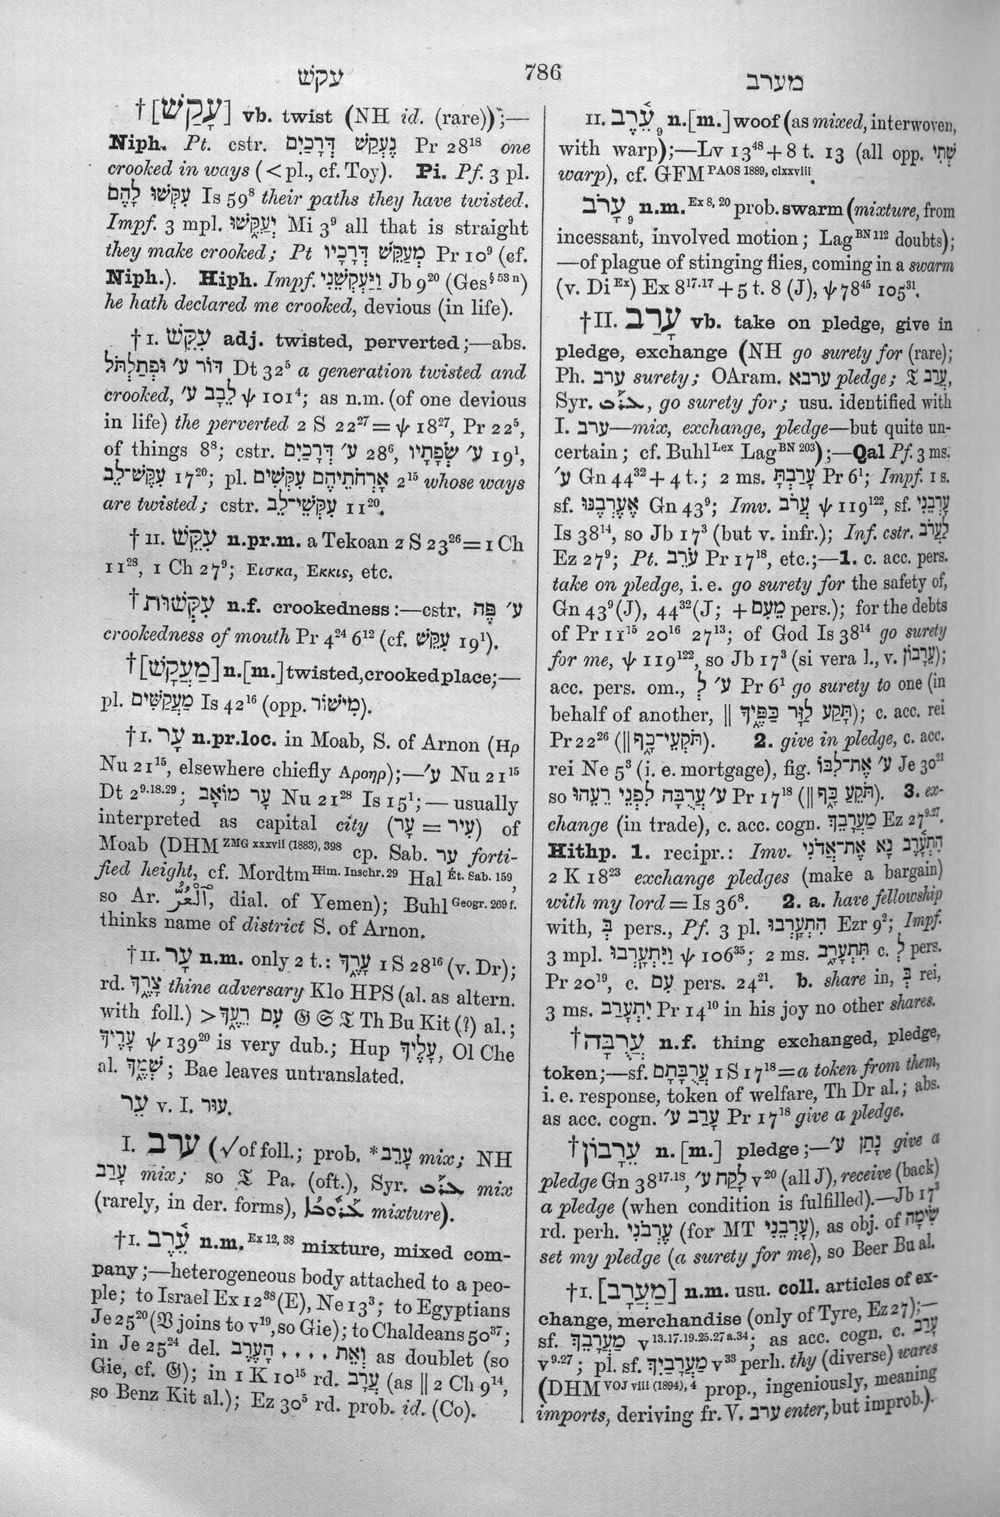 עקש
786
מערב
† [עָקַשׁ] vb. twist (NH id. (rare));—
Niph. Pt. cstr. נֶעְקַשׁ דְּרָכַיִם Pr 28¹⁸ one
crooked in ways (< pl., cf. Toy). Pi. Pf. 3 pl.
עִקְּשׁוּ לָהֶם Is 59⁸ their paths they have twisted.
Impf. 3 mpl. יְעַקֵּשׁוּ Mi 3⁹ all that is straight
they make crooked; Pt מְעַקֵּשׁ דְּרָכָיו Pr 10⁹ (cf.
Niph.). Hiph. Impf. וַיַּעְקְשֵׁנִי Jb 9²⁰ (Ges§ 53 n)
he hath declared me crooked, devious (in life).
† I. עִקֵּשׁ adj. twisted, perverted;—abs.
דּוֹר ע׳ וּפְתַלְתֹּל Dt 32⁵ a generation twisted and
crooked, לֵבָב ע׳ ψ 101⁴; as n.m. (of one devious
in life) the perverted 2 S 22²⁷ = ψ 18²⁷, Pr 22⁵,
of things 8⁸; cstr. ע׳ דְּרָכַיִם 28⁶, ע׳ שְׂפָתָיו 19¹,
עִקֶּשׁ־לֵב 17²⁰; pl. אָרְחֹתֵיהֶם עִקְּשִׁים 2¹⁵ whose ways
are twisted; cstr. עִקְּשֵׁי־לֵב 11²⁰.
† II. עִקֵּשׁ n.pr.m. a Tekoan 2 S 23²⁶ = 1 Ch
11²⁸, 1 Ch 27⁹; Εισκα, Εκκις, etc.
† עִקְּשׁוּת n.f. crookedness:—cstr. ע׳ פֶּה
crookedness of mouth Pr 4²⁴ 6¹² (cf. עִקֵּשׁ 19¹).
† [מַעֲקָשׁ] n.[m.] twisted, crooked place;—
pl. מַעֲקַשִּׁים Is 42¹⁶ (opp. מִישׁוֹר).
† I. עָר n.pr.loc. in Moab, S. of Arnon (Ηρ
Nu 21¹⁵, elsewhere chiefly Αροηρ);—ע׳ Nu 21¹⁵
Dt 2⁹·¹⁸·²⁹; עָר מוֹאָב Nu 21²⁸ Is 15¹;—usually
interpreted as capital city (עָר = עִיר) of
Moab (DHM ZMG xxxvii (1883), 393 cp. Sab. ער forti-
fied height, cf. Mordtm Him. Inschr. 29 Hal Ét. Sab. 159,
so Ar. اَلْعُرّ, dial. of Yemen); Buhl Geogr. 269 f.
thinks name of district S. of Arnon.
† II. עָר n.m. only 2 t.: עָרֶךָ 1 S 28¹⁶ (v. Dr);
rd. צָרֶךָ thine adversary Klo HPS (al. as altern.
with foll.) > עִם רֵעֶךָ 𝔊 𝔖 𝔗 Th Bu Kit (?) al.;
עָרֶיךָ ψ 139²⁰ is very dub.; Hup עָלֶיךָ, Ol Che
al. שְׁמֶךָ; Bae leaves untranslated.
עֵר v. I. עור.
I. ערב (√ of foll.; prob. *עָרַב mix; NH
עָרַב mix; so 𝔗 Pa. (oft.), Syr. ܥܪܒ mix
(rarely, in der. forms), mixture).
† I. עֵרֶב n.m. Ex 12, 38 mixture, mixed com-
pany;—heterogeneous body attached to a peo-
ple; to Israel Ex 12³⁸ (E), Ne 13³; to Egyptians
Je 25²⁰ (𝔙 joins to v¹⁹, so Gie); to Chaldeans 50³⁷;
in Je 25²⁴ del. וְאֵת . . . . הָעֶרֶב as doublet (so
Gie, cf. 𝔊); in 1 K 10¹⁵ rd. עֲרָב (as ‖ 2 Ch 9¹⁴,
so Benz Kit al.); Ez 30⁵ rd. prob. id. (Co).
II. עֵרֶב₉ n.[m.] woof (as mixed, interwoven,
with warp);—Lv 13⁴⁸ + 8 t. 13 (all opp. שְׁתִי
warp), cf. GFM PAOS 1889, clxxviii.
עָרֹב₉ n.m. Ex 8, 20 prob. swarm (mixture, from
incessant, involved motion; Lag BN 112 doubts);
—of plague of stinging flies, coming in a swarm
(v. Di Ex) Ex 8¹⁷·¹⁷ + 5 t. 8 (J), ψ 78⁴⁵ 105³¹.
†II. עָרַב vb. take on pledge, give in
pledge, exchange (NH go surety for (rare);
Ph. ערב surety; OAram. ערבא pledge; 𝔗 עֲרַב,
Syr. ܥܪܒ, go surety for; usu. identified with
I. ערב—mix, exchange, pledge—but quite un-
certain; cf. Buhl Lex Lag BN 203);—Qal Pf. 3 ms.
ע׳ Gn 44³² + 4 t.; 2 ms. עָרַבְתָּ Pr 6¹; Impf. 1 s.
sf. אֶעֶרְבֶנּוּ Gn 43⁹; Imv. עֲרֹב ψ 119¹²², sf. עָרְבֵנִי
Is 38¹⁴, so Jb 17³ (but v. infr.); Inf. cstr. לַעֲרֹב
Ez 27⁹; Pt. עֹרֵב Pr 17¹⁸, etc.;—1. c. acc. pers.
take on pledge, i. e. go surety for the safety of,
Gn 43⁹ (J), 44³² (J; + מֵעִם pers.); for the debts
of Pr 11¹⁵ 20¹⁶ 27¹³; of God Is 38¹⁴ go surety
for me, ψ 119¹²², so Jb 17³ (si vera l., v. עֵרָבוֹן);
acc. pers. om., ע׳ לְ Pr 6¹ go surety to one (in
behalf of another, ‖ תָּקַע לַזָּר כַּפֶּיךָ); c. acc. rei
Pr 22²⁶ (‖ תֹּקְעֵי־כָף). 2. give in pledge, c. acc.
rei Ne 5³ (i. e. mortgage), fig. ע׳ אֶת־לִבּוֹ Je 30²¹
so ע׳ עֲרֻבָּה לִפְנֵי רֵעֵהוּ Pr 17¹⁸ (‖ תֹּקֵעַ כָּף). 3. ex-
change (in trade), c. acc. cogn. מַעֲרָבֵךְ Ez 27⁹·²⁷.
Hithp. 1. recipr.: Imv. הִתְעָרֶב נָא אֶת־אֲדֹנִי
2 K 18²³ exchange pledges (make a bargain)
with my lord = Is 36⁸. 2. a. have fellowship
with, בְּ pers., Pf. 3 pl. הִתְעָרְבוּ Ezr 9²; Impf.
3 mpl. וַיִּתְעָרְבוּ ψ 106³⁵; 2 ms. תִּתְעָרָב c. לְ pers.
Pr 20¹⁹, c. עִם pers. 24²¹. b. share in, בְּ rei,
3 ms. יִתְעָרַב Pr 14¹⁰ in his joy no other shares.
†עֲרֻבָּה n.f. thing exchanged, pledge,
token;—sf. עֲרֻבָּתָם 1 S 17¹⁸ = a token from them,
i. e. response, token of welfare, Th Dr al.; abs.
as acc. cogn. עָרַב ע׳ Pr 17¹⁸ give a pledge.
†עֵרָבוֹן n. [m.] pledge;—נָתַן ע׳ give a
pledge Gn 38¹⁷·¹⁸, לָקַח ע׳ v²⁰ (all J), receive (back)
a pledge (when condition is fulfilled).—Jb 17³
rd. perh. עֶרְבֹנִי (for MT עָרְבֵנִי), as obj. of שִׂימָה
set my pledge (a surety for me), so Beer Bu al.
†I. [מַעֲרָב] n.m. usu. coll. articles of ex-
change, merchandise (only of Tyre, Ez 27);—
sf. מַעֲרָבֵךְ v¹³·¹⁷·¹⁹·²⁵·²⁷ ᵃ·³⁴; as acc. cogn. c. ערב
v⁹·²⁷; pl. sf. מַעֲרָבַיִךְ v³³ perh. thy (diverse) wares
(DHM VOJ viii (1894), 4 prop., ingeniously, meaning
imports, deriving fr. V. ערב enter, but improb.).